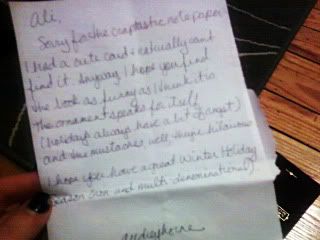 Ali,
Sorry for the craptastic note paper
I had a cute card & actually cant
find it. Anyway I hope you find
the book as funny as I think it is
The ornament speaks for itself
(holidays always have a lot of angst)
and the mustaches well, they're hilarious
I hope you have a great Winter Holiday
season (non and multi-denominational)